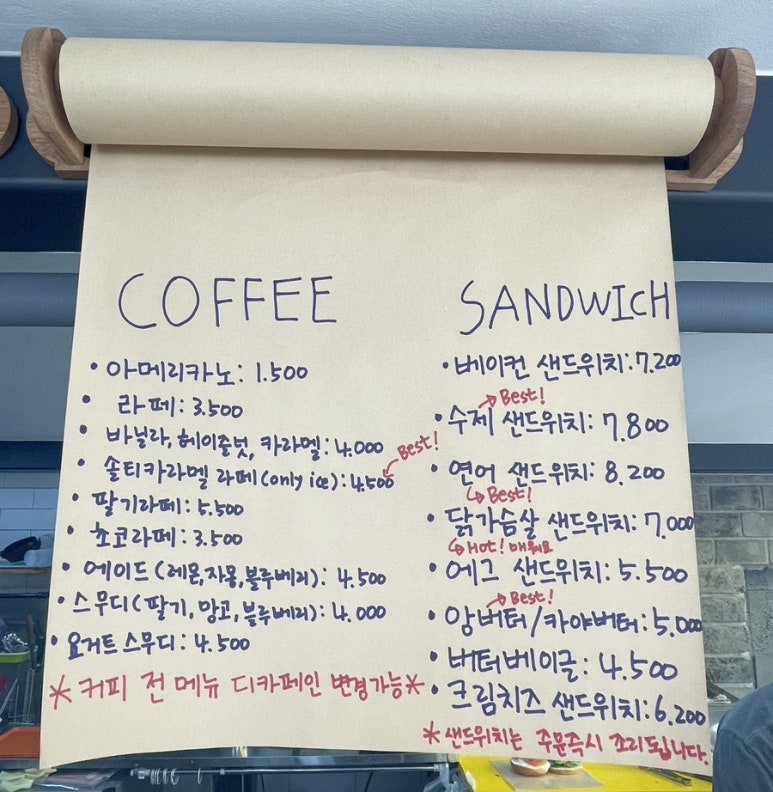 COFFEE
• 아메리카노: 1.500
• 라페: 3.500
• 바닐라, 헤이즐넛, 카라멜: 4.000
• 솔티카라멜 라페(only ice): 4.500
Best!
• 딸기라페: 5.500
• 초코라페: 3.500
• 에이드(레몬,자몽,블루베리): 4.500
• 스무디(딸기, 망고, 블루베리): 4.000
• 요거트 스무디: 4.500
* 커피 전 메뉴 디카페인 변경가능*
SANDWICH
• 베이컨 샌드위치: 7.200
Best!
• 수제 샌드위치: 7.800
• 연어 샌드위치: 8.200
Best!
• 닭가슴살 샌드위치: 7.000
Hot! 매워요
• 에그 샌드위치: 5.500
Best!
• 앙버터/카야버터: 5.000
• 버터베이글: 4.500
• 크림치즈 샌드위치: 6.200
* 샌드위치는 주문즉시 조리됩니다.